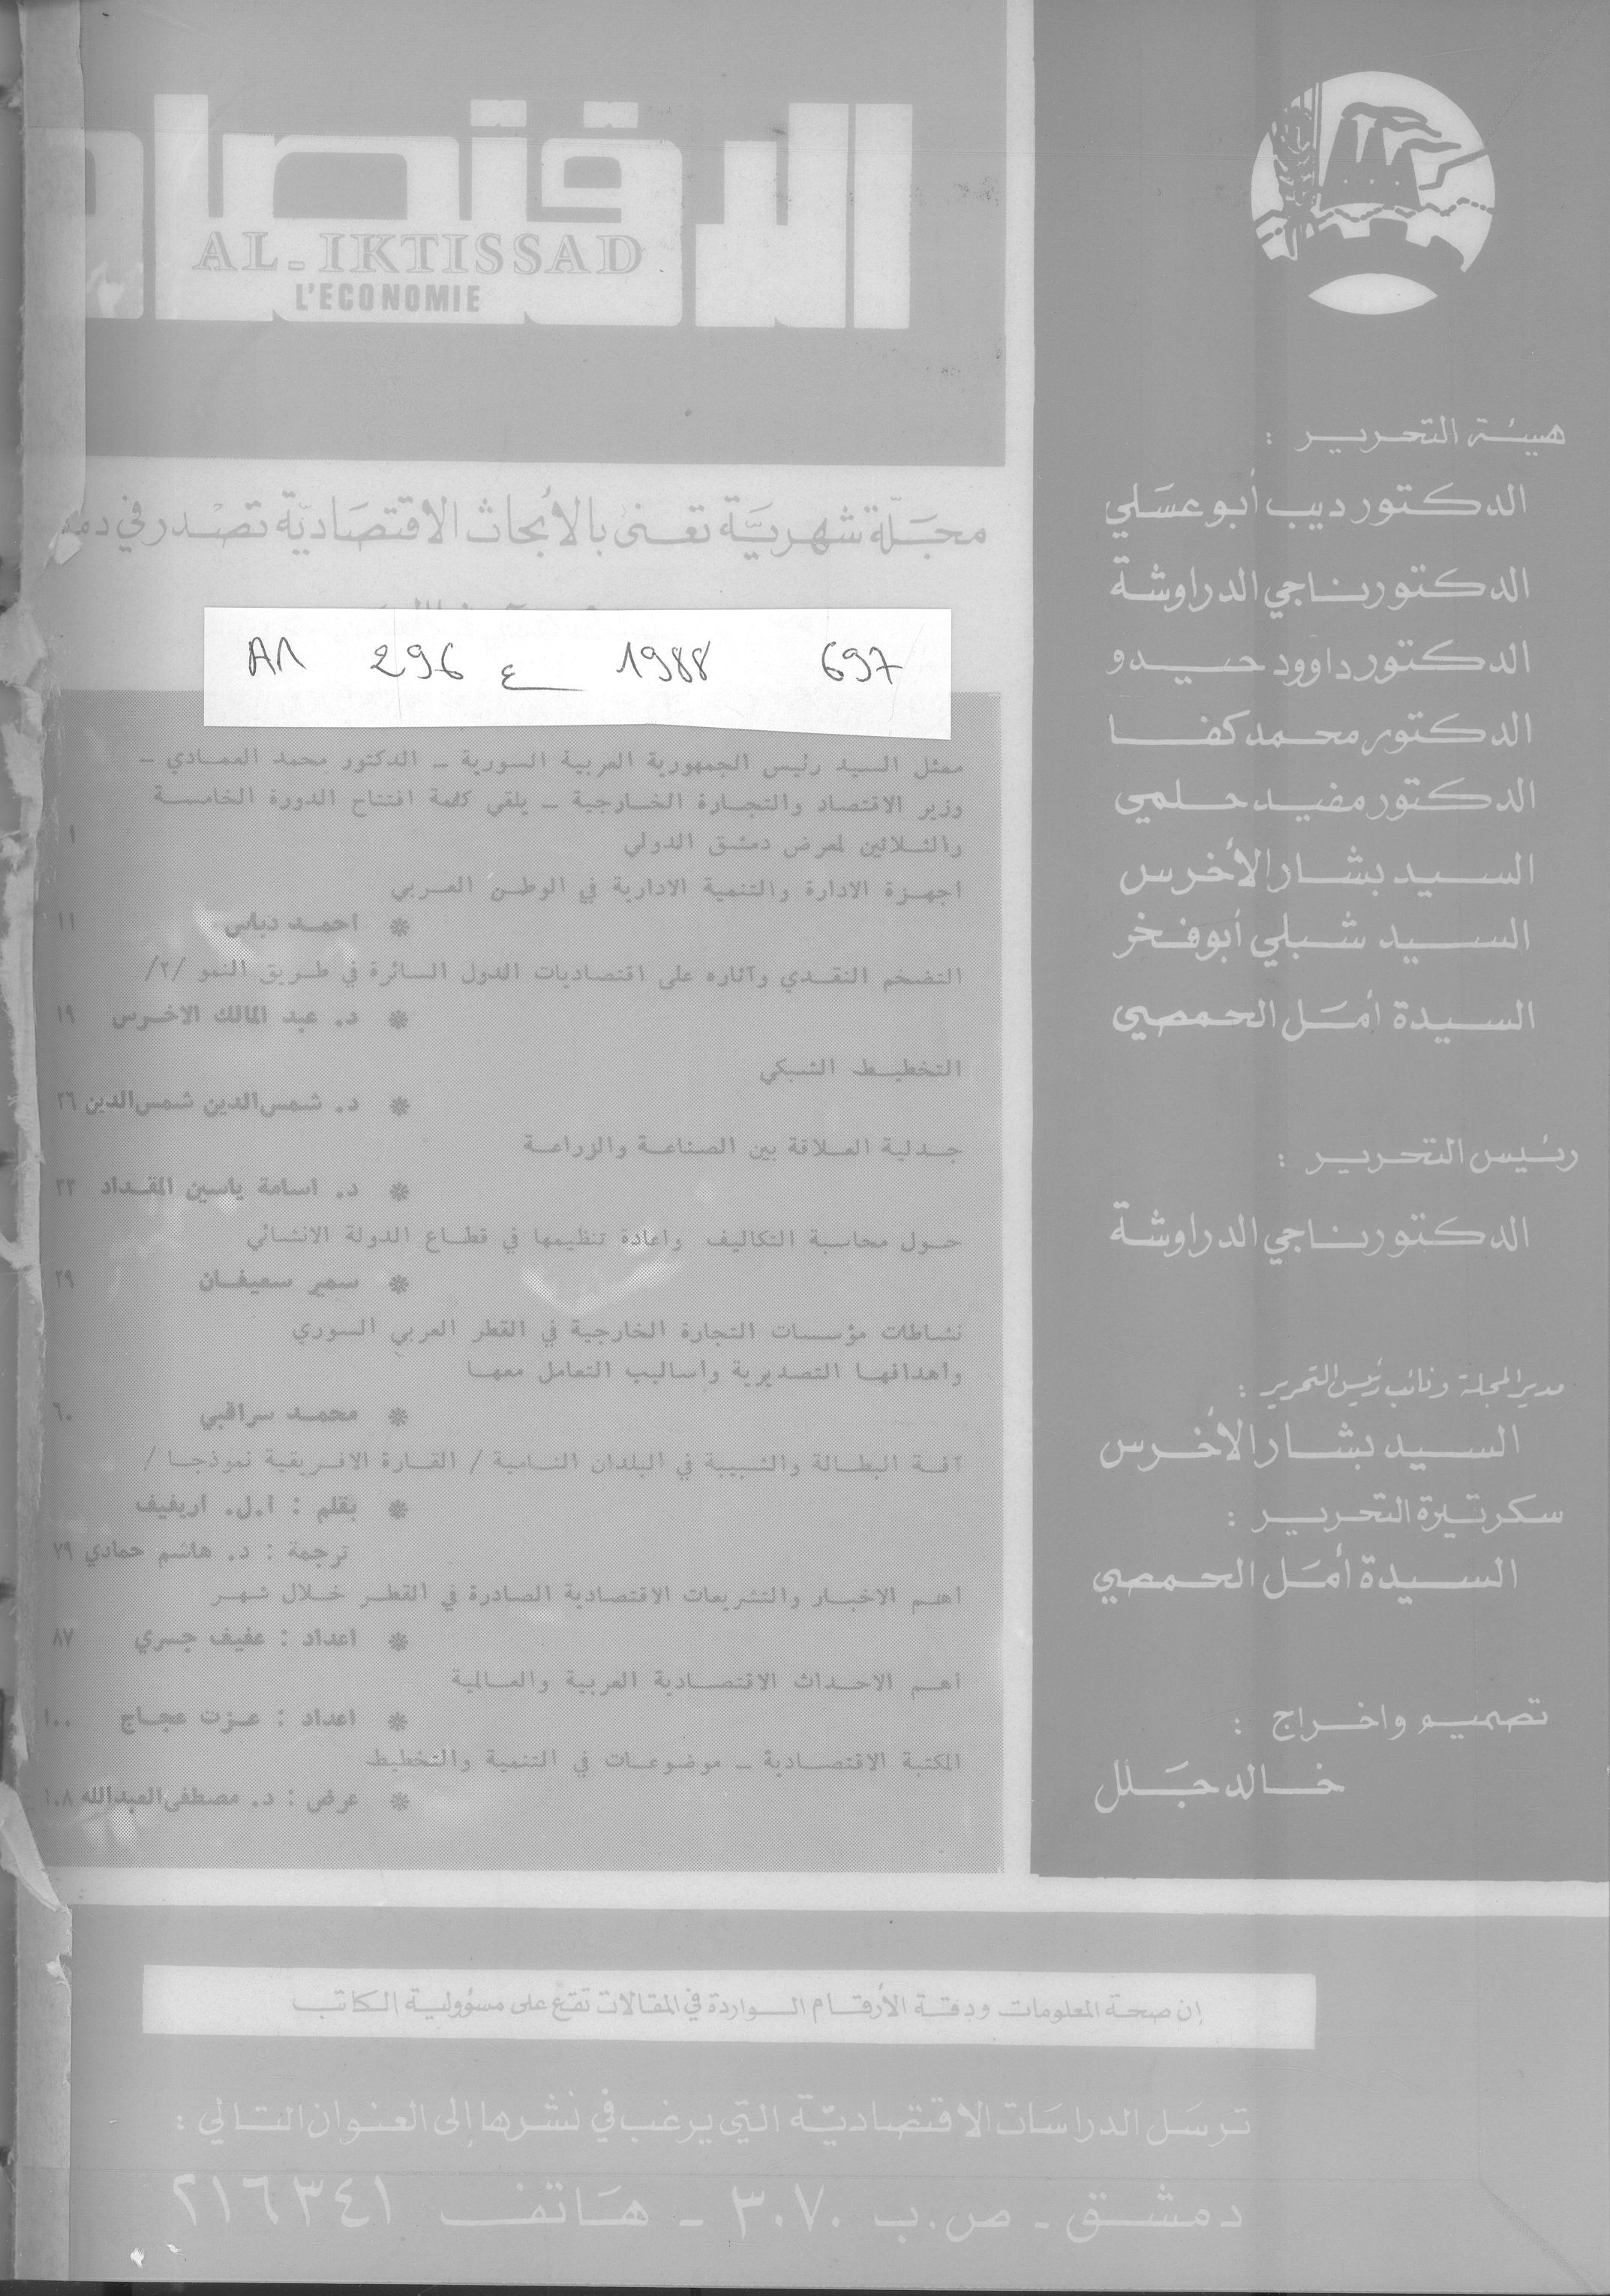 الاقتصاد
AL-IKTISSAD
L'ECONOMIE
مجلة شهرية تعنى بالأبحاث الاقتصادية تصدر في
A1 296 ع 1988 697
ممثل السيد رئيس الجمهورية العربية السورية – الدكتور محمد العمادي –
وزير الاقتصاد والتجارة الخارجية – يلقي كلمة افتتاح الدورة الخامسة
والثلاثين لمعرض دمشق الدولي ١
اجهزة الادارة والتنمية الادارية في الوطن العربي
* احمد دباس ١١
التضخم النقدي وآثاره على اقتصاديات الدول السائرة في طريق النمو /٢/
* د. عبد المالك الاخرس ١٩
التخطيط الشبكي
* د. شمس الدين شمس الدين ٢٦
جدلية العلاقة بين الصناعة والزراعة
* د. اسامة ياسين المقداد
حول محاسبة التكاليف واعادة تنظيمها في قطاع الدولة الانشائي
* سمير سعيفان
نشاطات مؤسسات التجارة الخارجية في القطر العربي السوري
واهدافها التصديرية واساليب التعامل معها
* محمد سراقبي ٦٠
آفة البطالة والشبيبة في البلدان النامية / القارة الافريقية نموذجا /
* بقلم : ا.ل. اريفيف
ترجمة : د. هاشم حمادي ٧٩
اهم الاخبار والتشريعات الاقتصادية الصادرة في القطر خلال شهر
* اعداد : عفيف جسري ٨٧
اهم الاحداث الاقتصادية العربية والعالمية
* اعداد : عزت عجاج ١٠٠
المكتبة الاقتصادية – موضوعات في التنمية والتخطيط
* عرض : د. مصطفى العبدالله ١٠٨
هيئة التحرير :
الدكتور ديب أبو عسلي
الدكتور ناجي الدراوشة
الدكتور داوود حيدو
الدكتور محمد كفا
الدكتور مفيد حلمي
السيد بشار الأخرس
السيد شبلي أبو فخر
السيدة أمل الحمصي
رئيس التحرير :
الدكتور ناجي الدراوشة
مدير المجلة ونائب رئيس التحرير :
السيد بشار الأخرس
سكرتيرة التحرير :
السيدة أمل الحمصي
تصميم واخراج :
خالد جلل
إن صحة المعلومات ودقة الأرقام الواردة في المقالات تقع على مسؤولية الكاتب
ترسل الدراسات الاقتصادية التي يرغب في نشرها إلى العنوان التالي :
دمشق - ص.ب ٣٠٧٠ - هاتف ٢١٦٣٤١